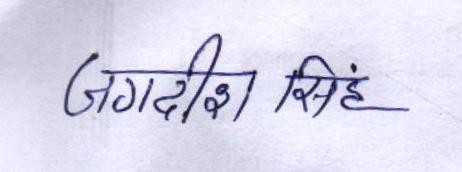 जगदीश सिंह